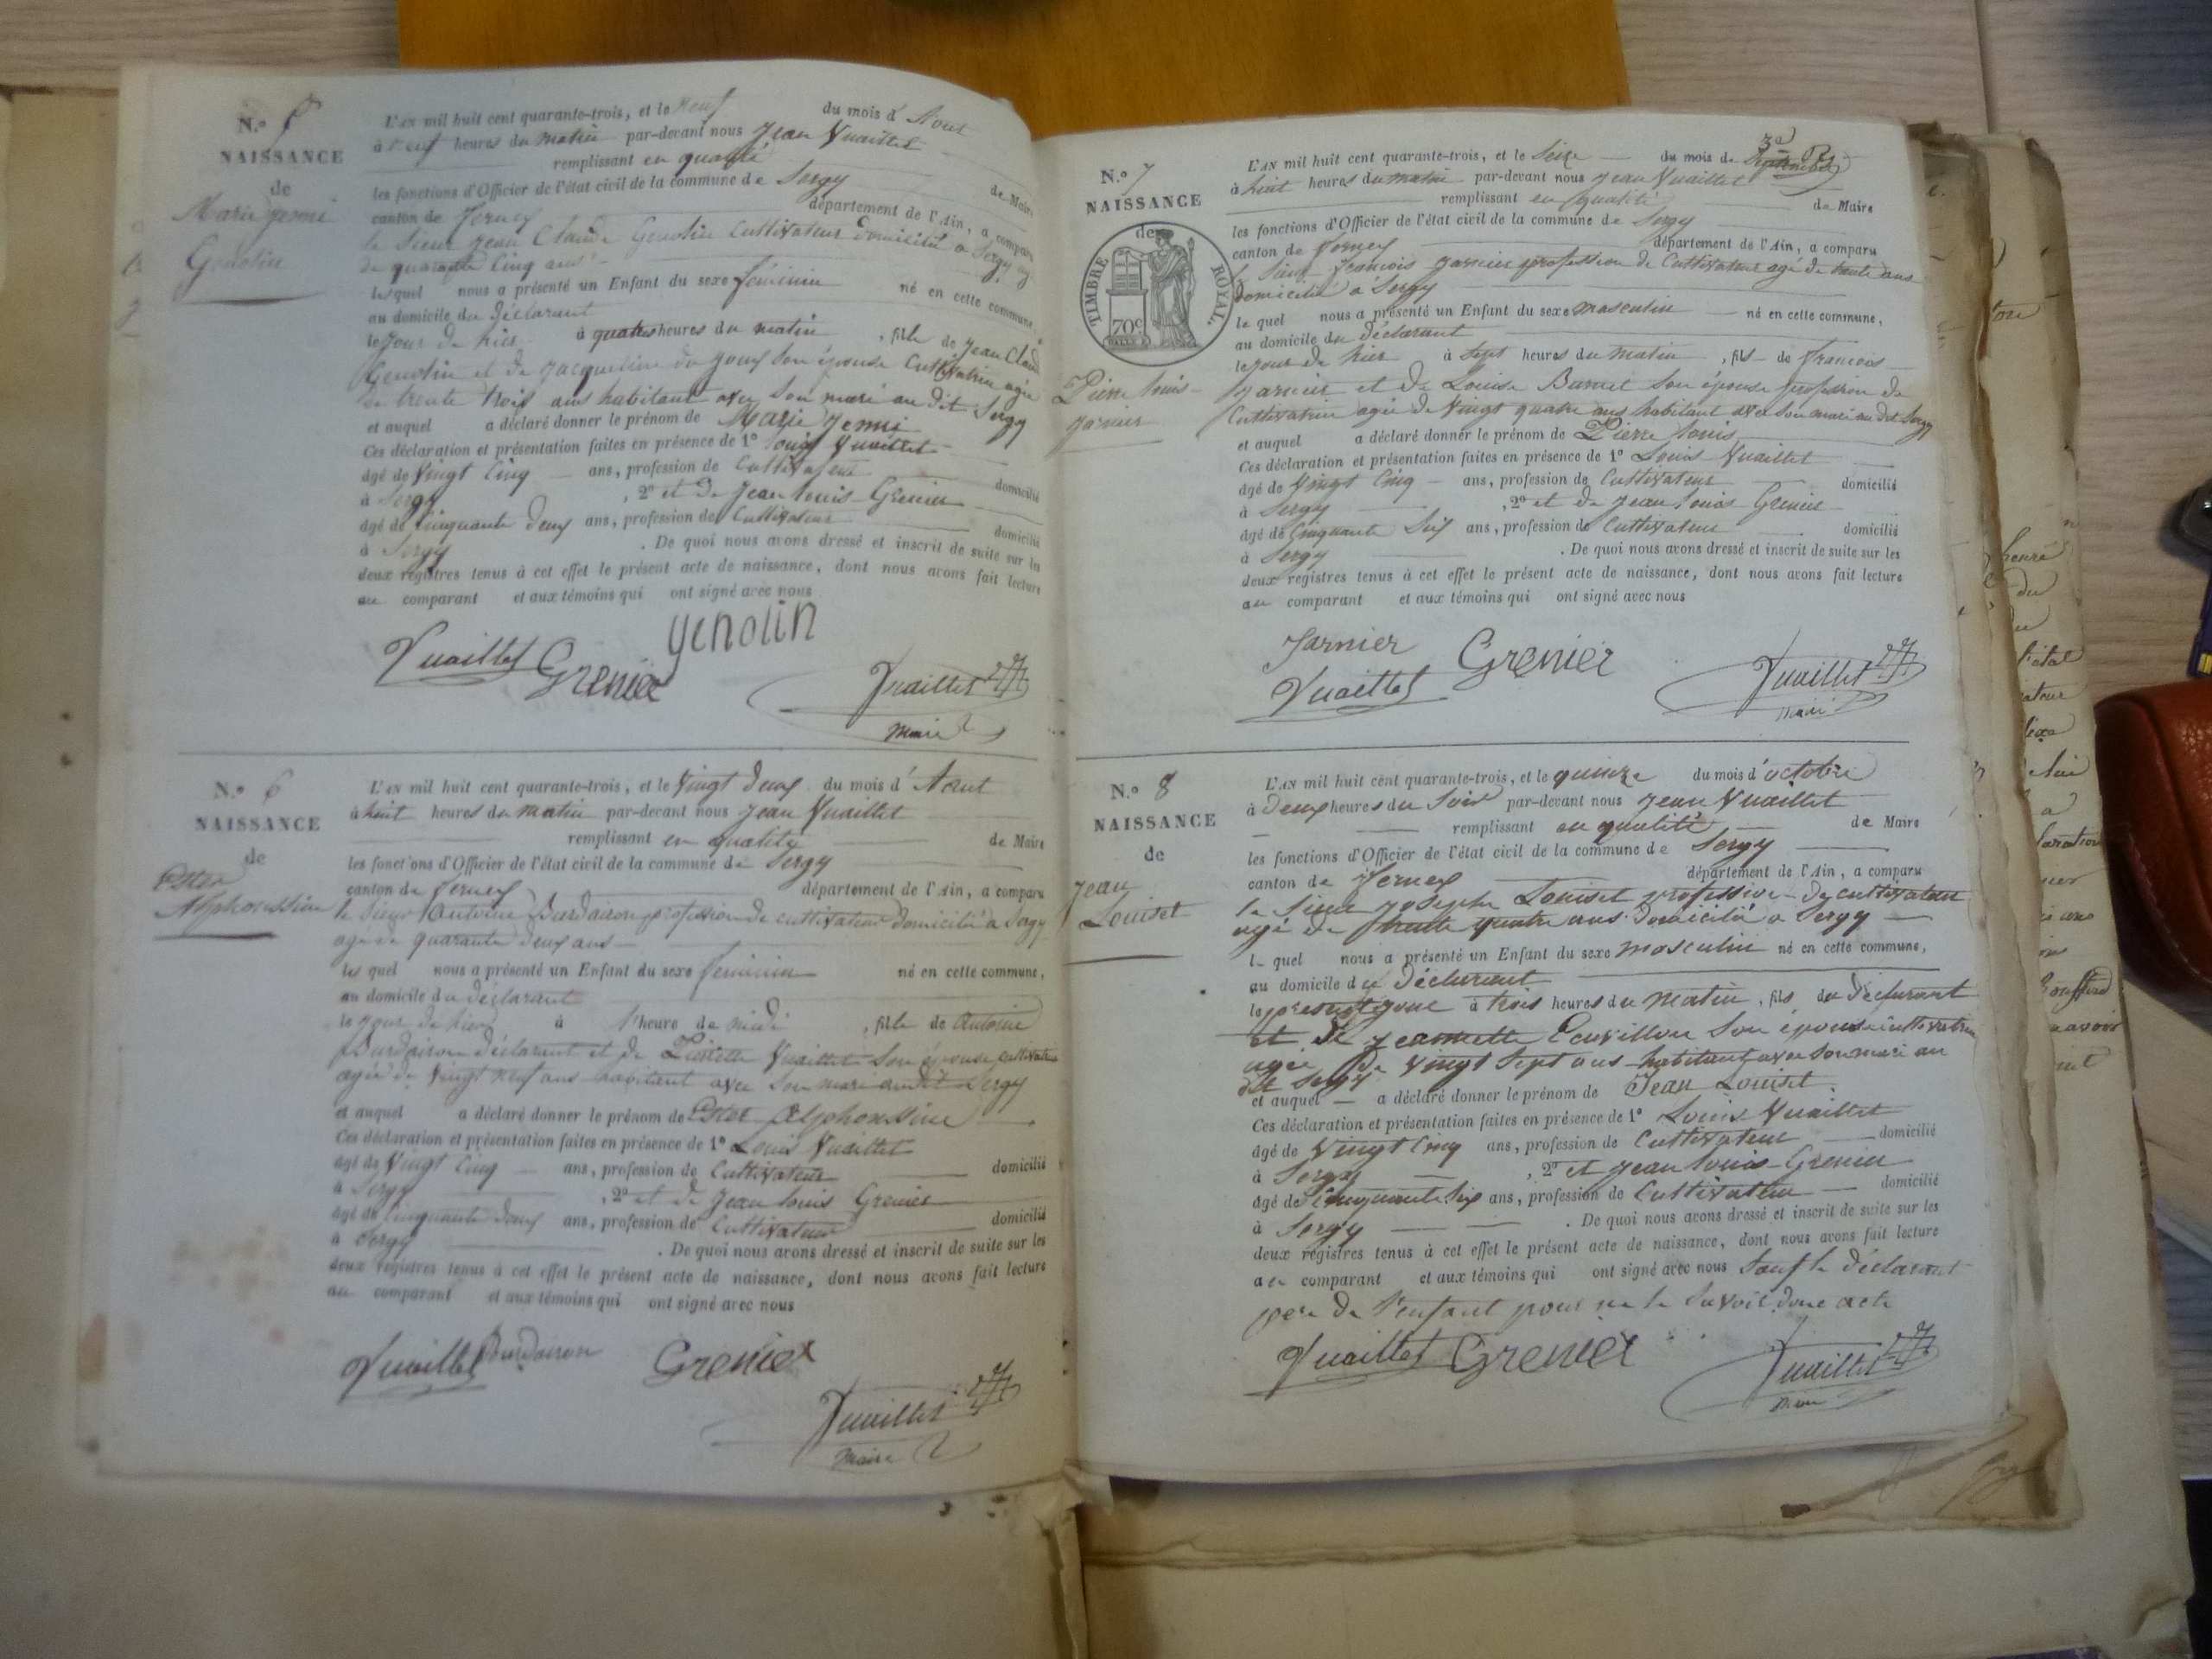 N.o 5
NAISSANCE
de
Marie Jenni
Genolin
L'AN mil huit cent quarante-trois, et le neuf du mois d'Aout
à neuf heures du matin par-devant nous Jean Vuaillet
remplissant en qualité de Maire
les fonctions d'Officier de l'état civil de la commune de Sergy
canton de Ferney département de l'Ain, a comparu
le Sieur Jean Claude Genolin Cultivateur domicilié a Sergy agé
de quarante Cinq ans
lequel nous a présenté un Enfant du sexe féminin né en cette commune
au domicile du déclarant
le jour de hier à quatre heures du matin, fille de Jean Claude
Genolin et de Jacqueline son épouse Cultivatrice agée
de trente trois ans habitant avec son mari au dit Sergy
et auquel a déclaré donner le prénom de Marie Jenni
Ces déclaration et présentation faites en présence de 1o Louis Vuaillet
âgé de Vingt Cinq ans, profession de Cultivateur domicilié
à Sergy, 2o et de Jean Louis Grenier
âgé de Cinquante deux ans, profession de Cultivateur domicilié
à Sergy. De quoi nous avons dressé et inscrit de suite sur les
deux registres tenus à cet effet le présent acte de naissance, dont nous avons fait lecture
au comparant et aux témoins qui ont signé avec nous
Genolin
Vuaillet Grenier
Vuaillet
Maire
N.o 6
NAISSANCE
de
Ester
Alphonsine
L'AN mil huit cent quarante-trois, et le Vingt deux du mois d'Aout
à huit heures du matin par-devant nous Jean Vuaillet
remplissant en qualité de Maire
les fonctions d'Officier de l'état civil de la commune de Sergy
canton de Ferney département de l'Ain, a comparu
le Sieur Antoine Burdairon profession de cultivateur domicilié a Sergy
agé de quarante deux ans
lequel nous a présenté un Enfant du sexe feminin né en cette commune,
au domicile du déclarant
le jour de hier à l'heure de midi, fille de Antoine
Burdairon déclarant et de Vuaillet son épouse cultivatrice
agée de Vingt neuf ans habitant avec son mari au dit Sergy
et auquel a déclaré donner le prénom de Ester Alphonsine
Ces déclaration et présentation faites en présence de 1o Louis Vuaillet
âgé de Vingt Cinq ans, profession de Cultivateur domicilié
à Sergy, 2o et de Jean Louis Grenier
âgé de Cinquante deux ans, profession de Cultivateur domicilié
à Sergy. De quoi nous avons dressé et inscrit de suite sur les
deux registres tenus à cet effet le présent acte de naissance, dont nous avons fait lecture
au comparant et aux témoins qui ont signé avec nous
Vuaillet Burdairon Grenier
Vuaillet
Maire
N.o 7
NAISSANCE
de
TIMBRE ROYAL.
70c
Pierre Louis
Garnier
L'AN mil huit cent quarante-trois, et le Seize du mois de Septembre
à huit heures du matin par-devant nous Jean Vuaillet
remplissant en qualité de Maire
les fonctions d'Officier de l'état civil de la commune de Sergy
canton de Ferney département de l'Ain, a comparu
le Sieur François Garnier profession de Cultivateur agé de trente ans
domicilié a Sergy
lequel nous a présenté un Enfant du sexe masculin né en cette commune,
au domicile du déclarant
le jour de hier à sept heures du matin, fils de françois
Garnier et de Louise son épouse profession de
Cultivatrice agée de Vingt quatre ans habitant avec son mari au dit Sergy
et auquel a déclaré donner le prénom de Pierre Louis
Ces déclaration et présentation faites en présence de 1o Louis Vuaillet
âgé de Vingt Cinq ans, profession de Cultivateur domicilié
à Sergy, 2o et de Jean Louis Grenier
âgé de Cinquante Six ans, profession de Cultivateur domicilié
à Sergy. De quoi nous avons dressé et inscrit de suite sur les
deux registres tenus à cet effet le présent acte de naissance, dont nous avons fait lecture
au comparant et aux témoins qui ont signé avec nous
Garnier Grenier
Vuaillet
Vuaillet
Maire
N.o 8
NAISSANCE
de
Jean
Louiset
L'AN mil huit cent quarante-trois, et le quinze du mois d'octobre
à Deux heures du Soir par-devant nous Jean Vuaillet
remplissant en qualité de Maire
les fonctions d'Officier de l'état civil de la commune de Sergy
canton de Ferney département de l'Ain, a comparu
le Sieur Joseph Louiset profession de cultivateur
agé de trente quatre ans domicilié a Sergy
lequel nous a présenté un Enfant du sexe masculin né en cette commune,
au domicile du déclarant
le présent jour à trois heures du matin, fils du déclarant
et de Jeannette Ecuvillon son épouse cultivatrice
agée de vingt sept ans habitant avec son mari au
dit Sergy
et auquel a déclaré donner le prénom de Jean Louiset.
Ces déclaration et présentation faites en présence de 1o Louis Vuaillet
âgé de Vingt Cinq ans, profession de Cultivateur domicilié
à Sergy, 2o et Jean Louis Grenier
âgé de Cinquante Six ans, profession de Cultivateur domicilié
à Sergy. De quoi nous avons dressé et inscrit de suite sur les
deux registres tenus à cet effet le présent acte de naissance, dont nous avons fait lecture
au comparant et aux témoins qui ont signé avec nous Sauf le déclarant
pere de l'enfant pour ne le Savoir donc acte
Vuaillet Grenier
Vuaillet
Maire